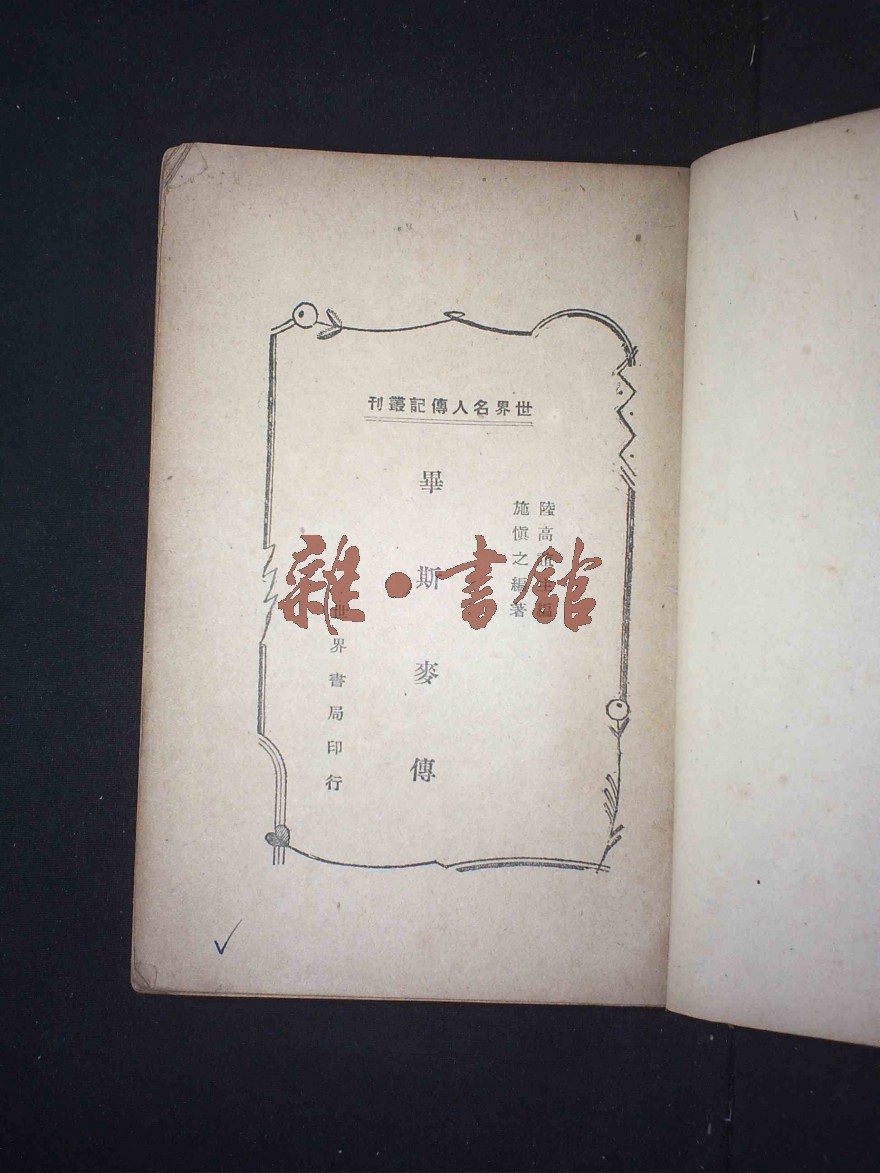 世界名人傳記叢刊
陸高誼主編
施愼之編著
畢斯麥傳
世界書局印行
雜·書館